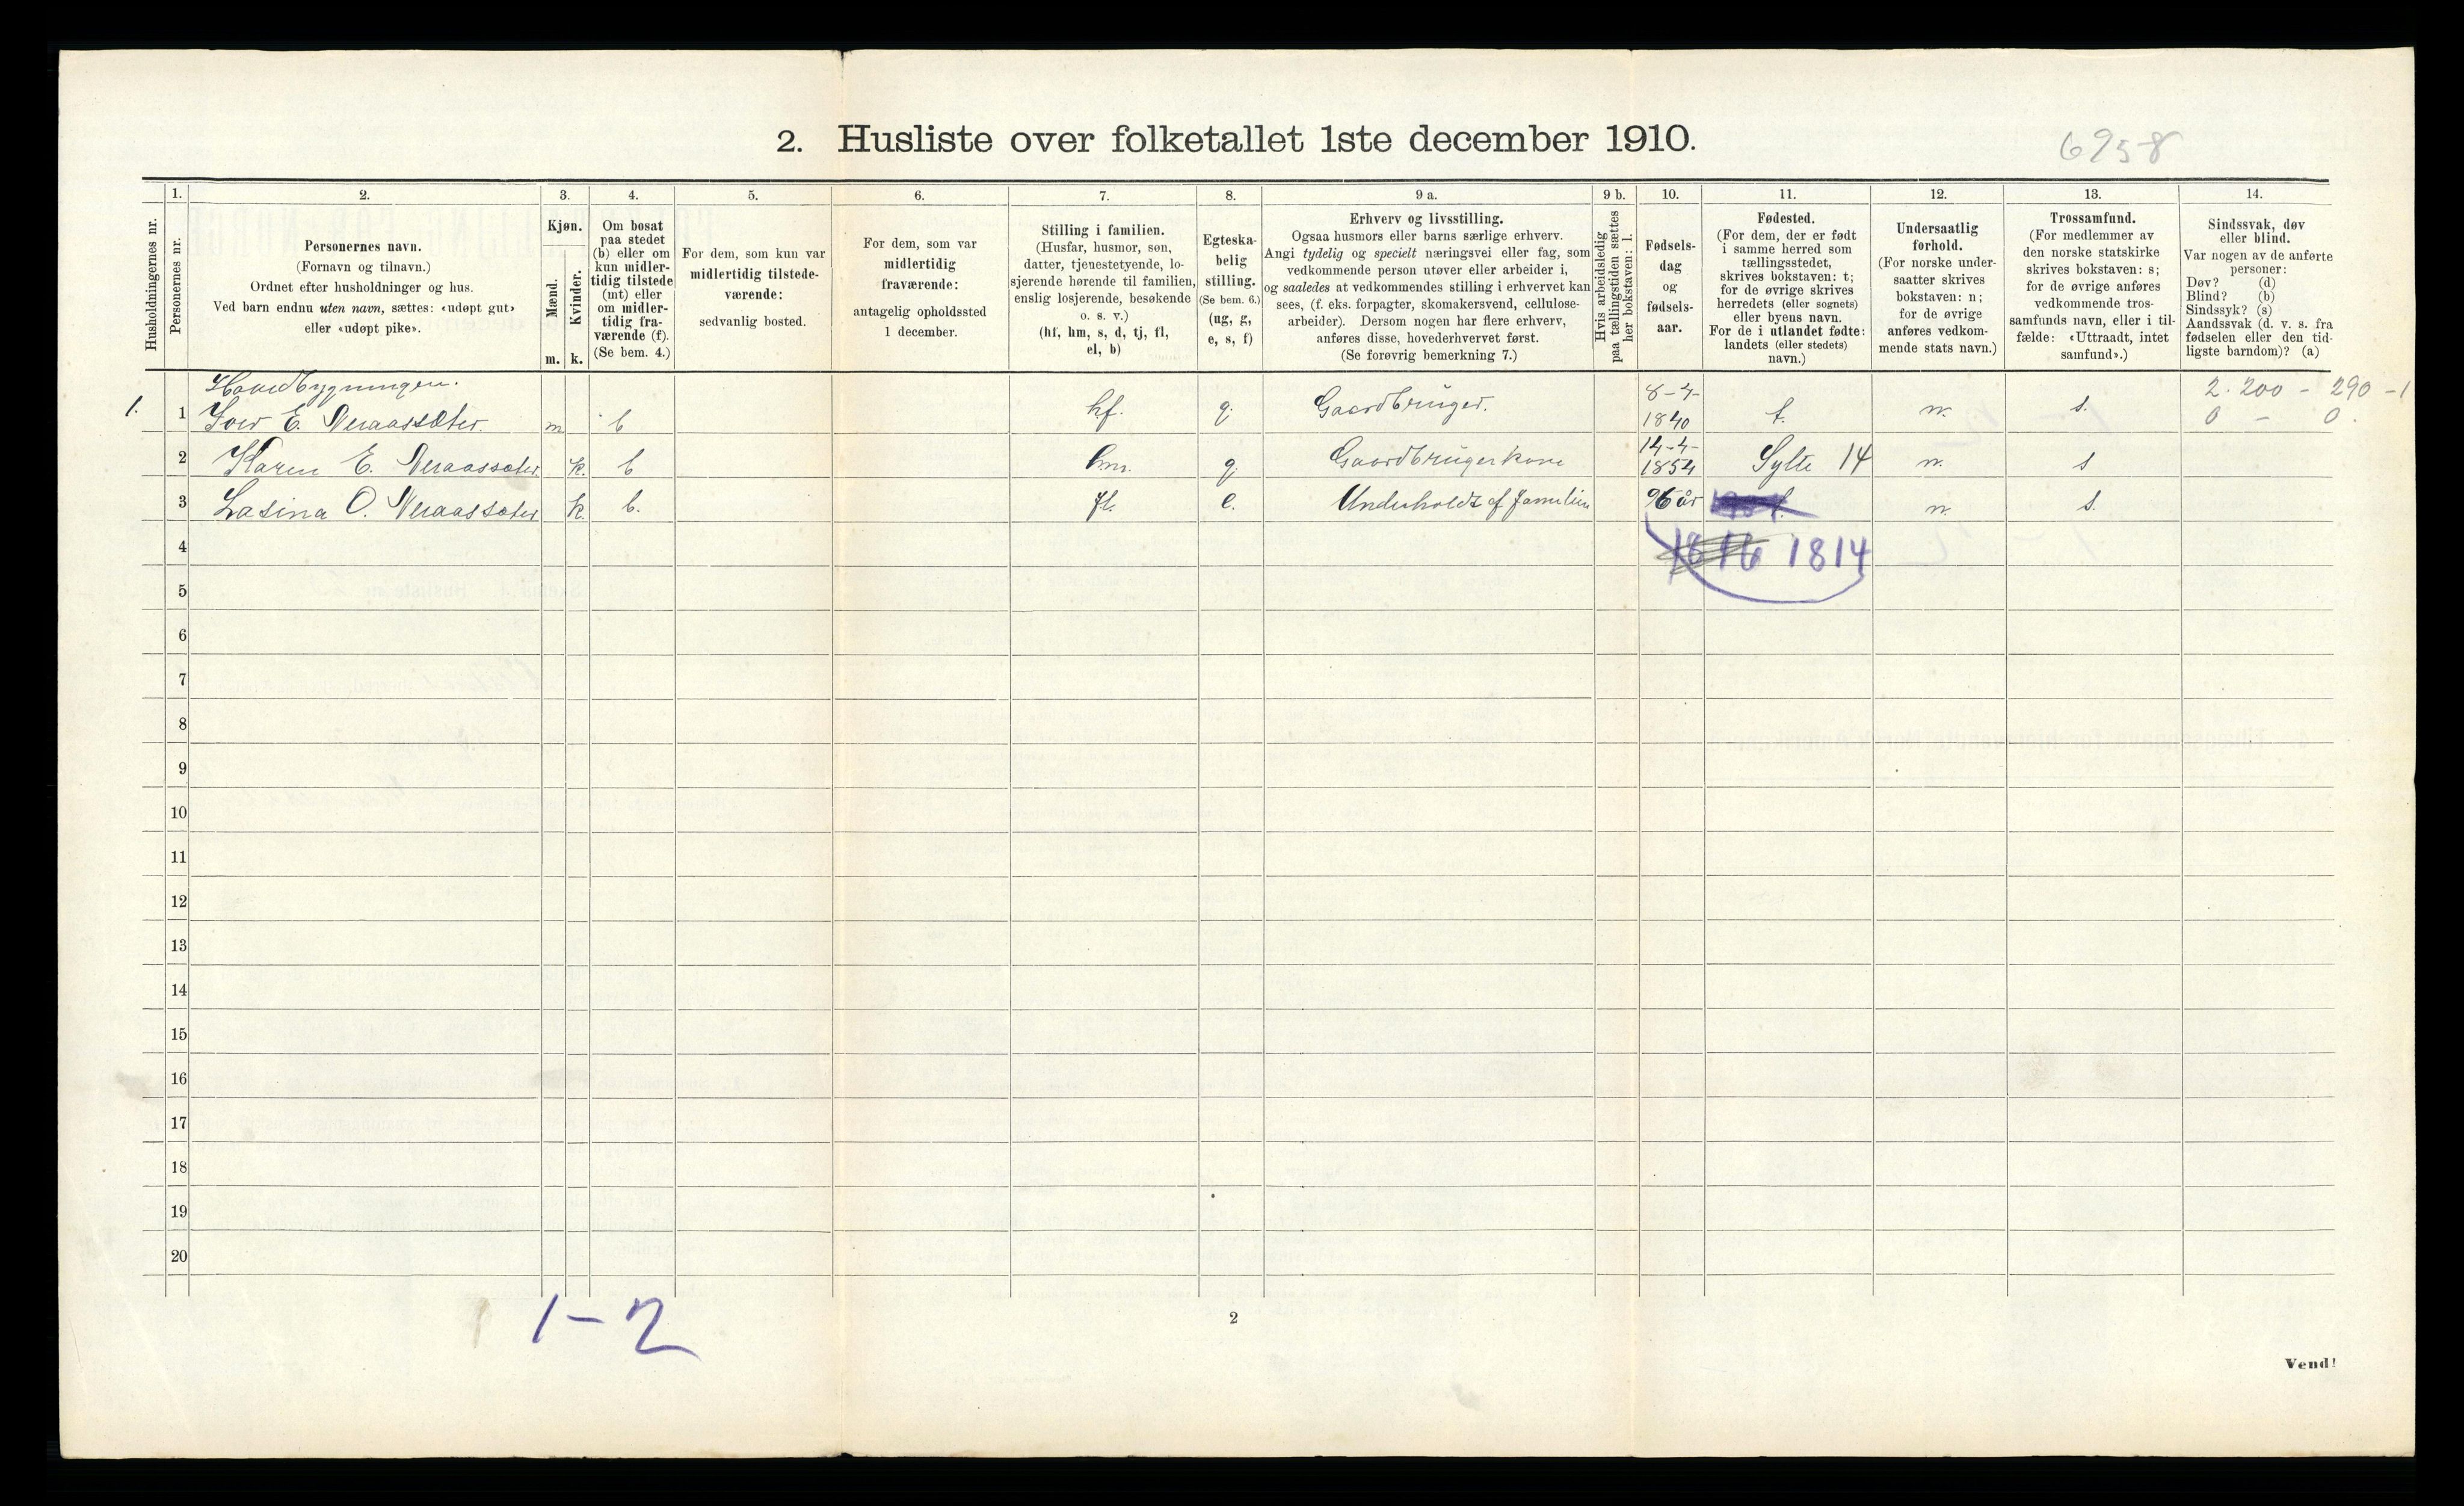 2. Husliste over folketallet 1ste december 1910.
6958
1. 2. 3. 4. 5. 6. 7. 8. 9 a. 9 b. 10. 11. 12. 13. 14.
Husholdningernes nr.
Personernes nr.
Personernes navn.
(Fornavn og tilnavn.)
Ordnet efter husholdninger og hus.
Ved barn endnu uten navn, sættes: «udøpt gut»
eller «udøpt pike».
Kjøn.
Mænd.
m.
Kvinder.
k.
Om bosat
paa stedet
(b) eller om
kun midler-
tidig tilstede
(mt) eller
om midler-
tidig fra-
værende (f).
(Se bem. 4.)
For dem, som kun var
midlertidig tilstede-
værende:
sedvanlig bosted.
For dem, som var
midlertidig
fraværende:
antagelig opholdssted
1 december.
Stilling i familien.
(Husfar, husmor, søn,
datter, tjenestetyende, lo-
sjerende hørende til familien,
enslig losjerende, besøkende
o. s. v.)
(hf, hm, s, d, tj, fl,
el, b)
Egteska-
belig
stilling.
(Se bem. 6.)
(ug, g,
e, s, f)
Erhverv og livsstilling.
Ogsaa husmors eller barns særlige erhverv.
Angi tydelig og specielt næringsvei eller fag, som
vedkommende person utøver eller arbeider i,
og saaledes at vedkommendes stilling i erhvervet kan
sees, (f. eks. forpagter, skomakersvend, cellulose-
arbeider). Dersom nogen har flere erhverv,
anføres disse, hovederhvervet først.
(Se forøvrig bemerkning 7.)
Hvis arbeidsledig
paa tællingstiden sættes
her bokstaven: l.
Fødsels-
dag
og
fødsels-
aar.
Fødested.
(For dem, der er født
i samme herred som
tællingsstedet,
skrives bokstaven: t;
for de øvrige skrives
herredets (eller sognets)
eller byens navn.
For de i utlandet fødte:
landets (eller stedets)
navn.)
Undersaatlig
forhold.
(For norske under-
saatter skrives
bokstaven: n;
for de øvrige
anføres vedkom-
mende stats navn.)
Trossamfund.
(For medlemmer av
den norske statskirke
skrives bokstaven: s;
for de øvrige anføres
vedkommende tros-
samfunds navn, eller i til-
fælde: «Uttraadt, intet
samfund».)
Sindssvak, døv
eller blind.
Var nogen av de anførte
personer:
Døv? (d)
Blind? (b)
Sindssyk? (s)
Aandssvak (d. v. s. fra
fødselen eller den tid-
ligste barndom)? (a)
Hovedbygningen. 8-4- 2.200 - 290 -1
1. 1 Iver E. Neraassæter. m b hf. g. Gaardbruger. 1840 t. n. s. 0 - 0.
14-4-
2 Karen E. Neraassæter k. b hm. g. Gaardbrugerkone 1854 Sylte 14 n. s
3 Lasina O. Neraassæter k. b. fl. e. Underholdt af familien 96 år t. n. s.
4 1816 1814
5
6
7
8
9
10
11
12
13
14
15
16
17
18
19
20
1-2
2
Vend!